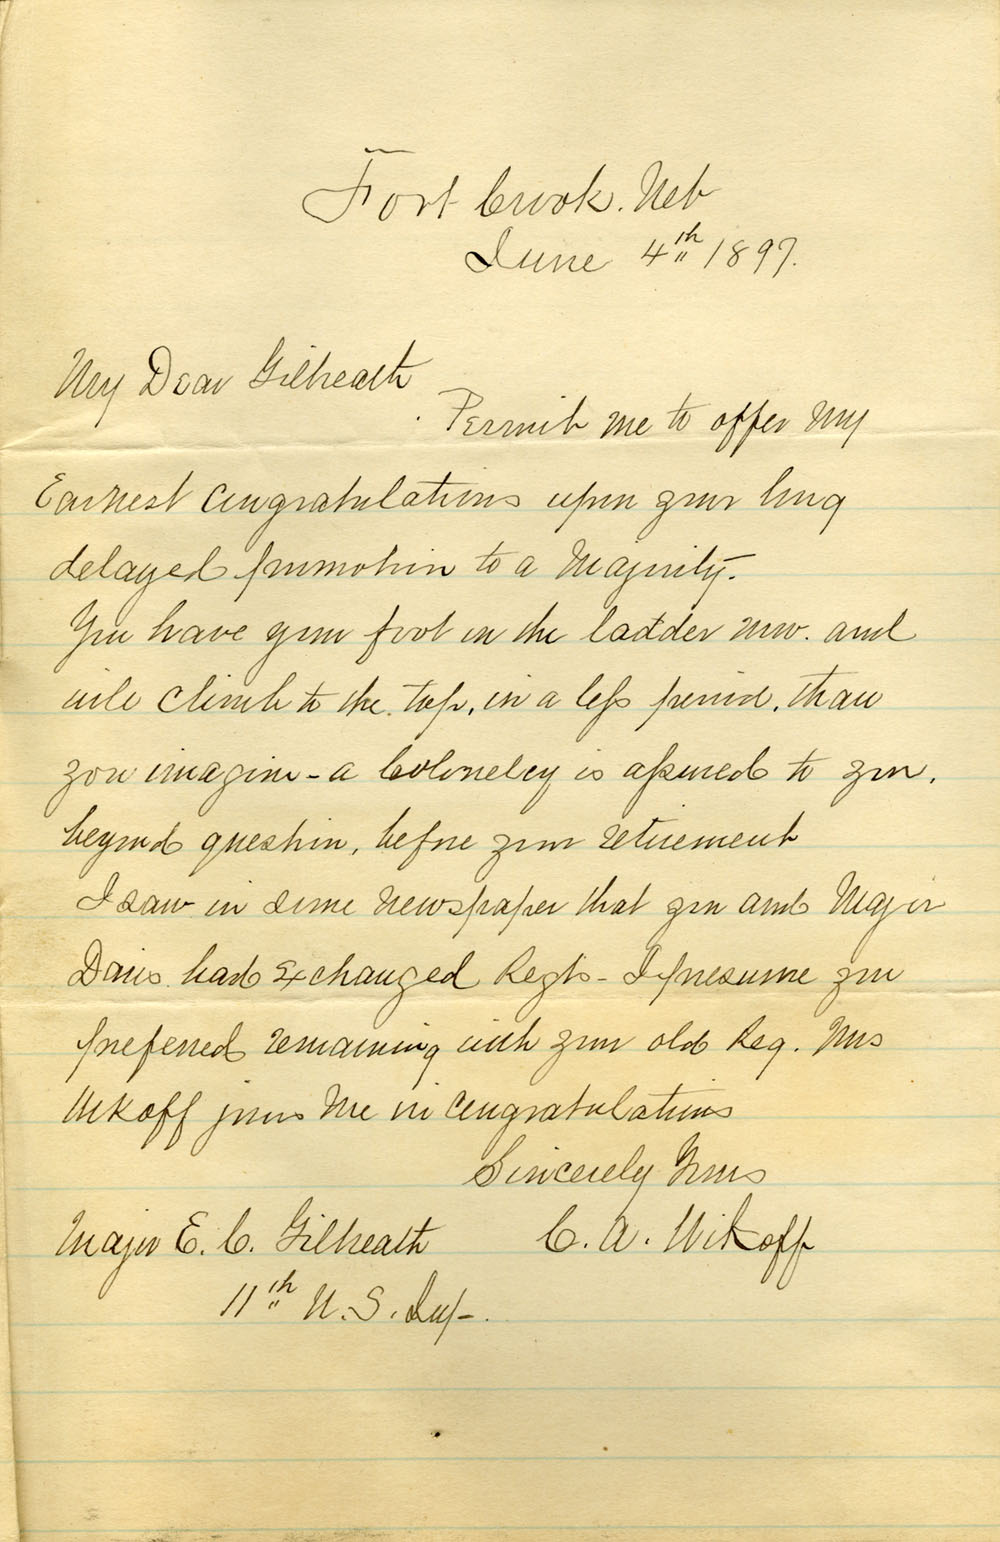 Fort Crook. Neb
June 4th 1897.
My Dear Gilbreath
Permit me to offer my
Earnest congratulations upon your long
delayed promotion to a Majority.
You have your foot on the ladder now. and
will climb to the top, in a less period, than
you imagine - a Colonelcy is assured to you,
beyond question, before your retirement
I saw in some Newspaper that you and Major
Davis had Exchanged Regts - I presume you
preferred remaining with your old Reg. Mrs
Wikoff joins Me in Congratulations
Sincerely Yours
C. A. Wikoff
Major E. C. Gilbreath
11th U. S. Inf-.